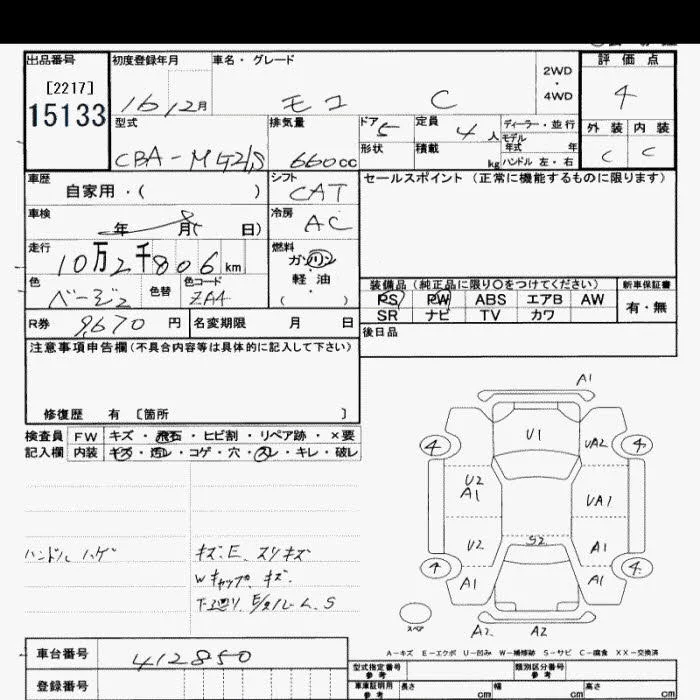 出品番号 初度登録年月 車名・グレード 評価点
[2217] 2WD・4WD
15133 16 12月 モコ C 4
型式 排気量 ドア 5 定員 4人 ディーラー・並行 外装 内装
モデル年式 年
CBA-MG21S 660cc 形状 積載 kg ハンドル 左・右 C C
車歴 シフト セールスポイント(正常に機能するものに限ります)
自家用・( ) CAT
車検 冷房
年 8月( 日) AC
走行 燃料
10万2千806km ガソリン
色 色替 色コード 軽油
ベージュ ZA4 ( )
装備品(純正品に限り〇をつけてください) 新車保証書
PS PW ABS エアB AW 有・無
SR ナビ TV カワ
R券 9,670円 名変期限 月 日
後日品
注意事項申告欄(不具合内容等は具体的に記入して下さい)
修復歴 有 [箇所 ]
検査員 FW キズ・飛石・ヒビ割・リペア跡・×要
記入欄 内装 キズ・汚レ・コゲ・穴・スレ・キレ・破レ
A1
U1
4 UA2 4
U2
A1 UA1
U2 S2 A1
4 A1 A1 4
スペア A2 A2
ハンドル ハゲ キズ.E. スリキズ
Wキャップ. キズ.
下廻り.
A-キズ E-エクボ U-凹み W-補修跡 S-サビ C-腐食 XX-交換済
車台番号 412850
登録番号
型式指定番号 参考 類別区分番号 参考
車庫証明用 参考 長さ cm 幅 cm 高さ cm